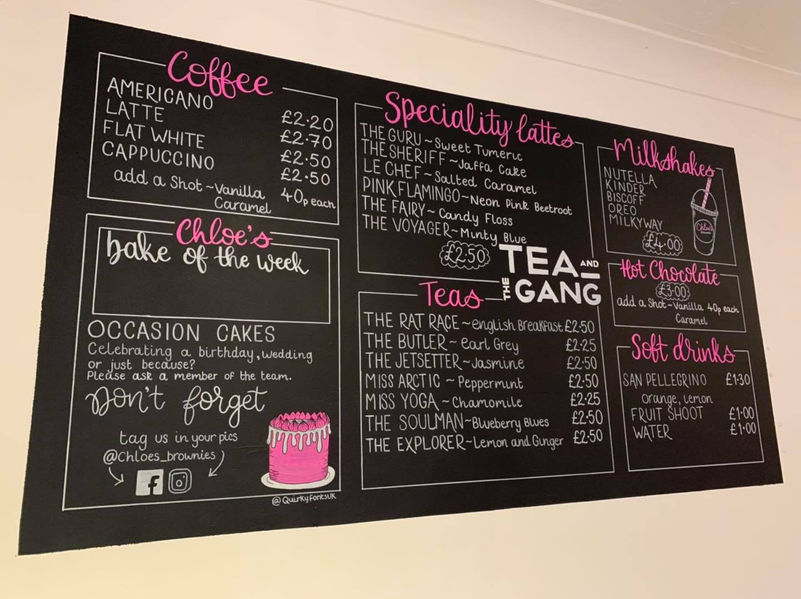 Coffee
AMERICANO £2.20
LATTE £2.70
FLAT WHITE £2.50
CAPPUCCINO £2.50
add a Shot ~ Vanilla 40p each
Caramel
Chloe's
bake of the week
OCCASION CAKES
Celebrating a birthday, wedding
or just because?
Please ask a member of the team.
Don't forget
tag us in your pics
@Chloes_brownies
@QuirkyfontsUK
Speciality lattes
THE GURU ~ Sweet Tumeric
THE SHERIFF ~ Jaffa Cake
LE CHEF ~ Salted Caramel
PINK FLAMINGO ~ Neon Pink Beetroot
THE FAIRY ~ Candy Floss
THE VOYAGER ~ Minty Blue
£2.50
TEA AND
THE GANG
Teas
THE RAT RACE ~ English Breakfast £2.50
THE BUTLER ~ Earl Grey £2.25
THE JETSETTER ~ Jasmine £2.50
MISS ARCTIC ~ Peppermint £2.50
MISS YOGA ~ Chamomile £2.25
THE SOULMAN ~ Blueberry Blues £2.50
THE EXPLORER ~ Lemon and Ginger £2.50
Milkshakes
NUTELLA
KINDER
BISCOFF
OREO
MILKYWAY
£4.00
Chloe's
Hot Chocolate
£3.00
add a Shot ~ Vanilla 40p each
Caramel
Soft drinks
SAN PELLEGRINO £1.30
Orange, Lemon
FRUIT SHOOT £1.00
WATER £1.00